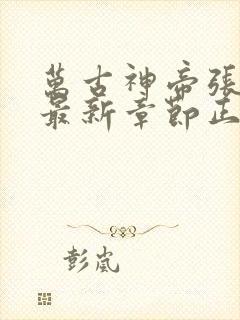 萬古神帝張
最新章節正
彭嵐